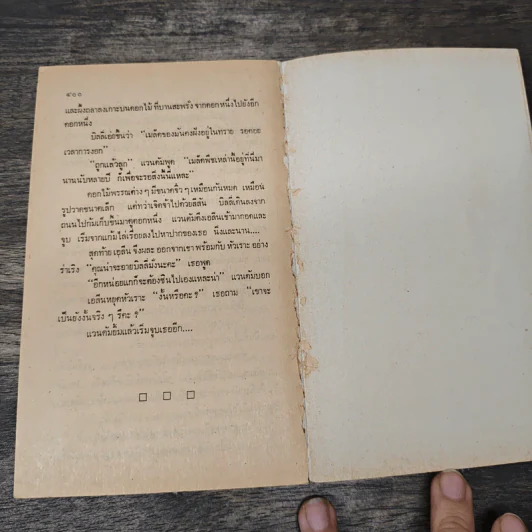 ๔๐๐
และผึ้งถลาลงเกาะบนดอกไม้ ที่บานสะพรั่ง จากดอกหนึ่งไปยังอีก
ดอกหนึ่ง
บิลลี่เอ่ยขึ้นว่า "เมล็ดของมันคงฝังอยู่ในทราย รอคอย
เวลาการงอก"
"ถูกแล้วลูก" แวนดัมพูด "เมล็ดพืชเหล่านี้อยู่ที่นี่มา
นานนับหลายปี ก็เพื่อจะรอสิ่งนี้นี่แหละ"
ดอกไม้พรรณต่าง ๆ มีขนาดจิ๋ว ๆ เหมือนกันหมด เหมือน
รูปวาดขนาดเล็ก แต่ทว่าเจิดจ้าไปด้วยสีสัน บิลลี่เดินลงจาก
ถนนไปก้มเก็บขึ้นมาดูดอกหนึ่ง แวนดัมดึงเอลีนเข้ามากอดและ
จูบ เริ่มจากแก้มไล่เรื่อยลงไปหาปากของเธอ นิ่งและนาน....
สุดท้าย เอลีน จึงผละ ออกจากเขา พร้อมกับ หัวเราะ อย่าง
ร่าเริง "คุณน่าจะอายบิลลี่มั่งนะคะ" เธอพูด
"อีกหน่อยแกก็จะต้องชินไปเองแหละน่า" แวนดัมบอก
เอลีนหยุดหัวเราะ "งั้นหรือคะ ?" เธอถาม "เขาจะ
เป็นยังงั้นจริง ๆ รึคะ ?"
แวนดัมยิ้มแล้วเริ่มจูบเธออีก....